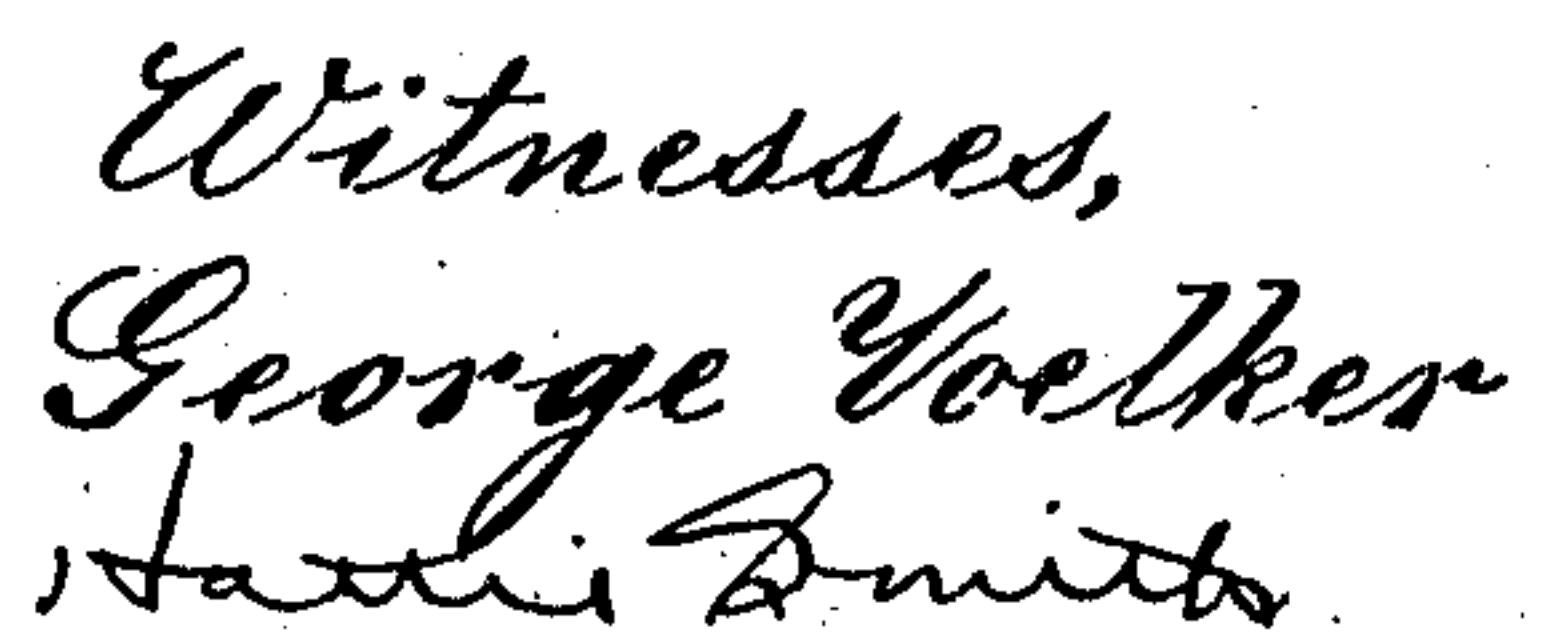 Witnesses,
George Voelker
Hattie Smith